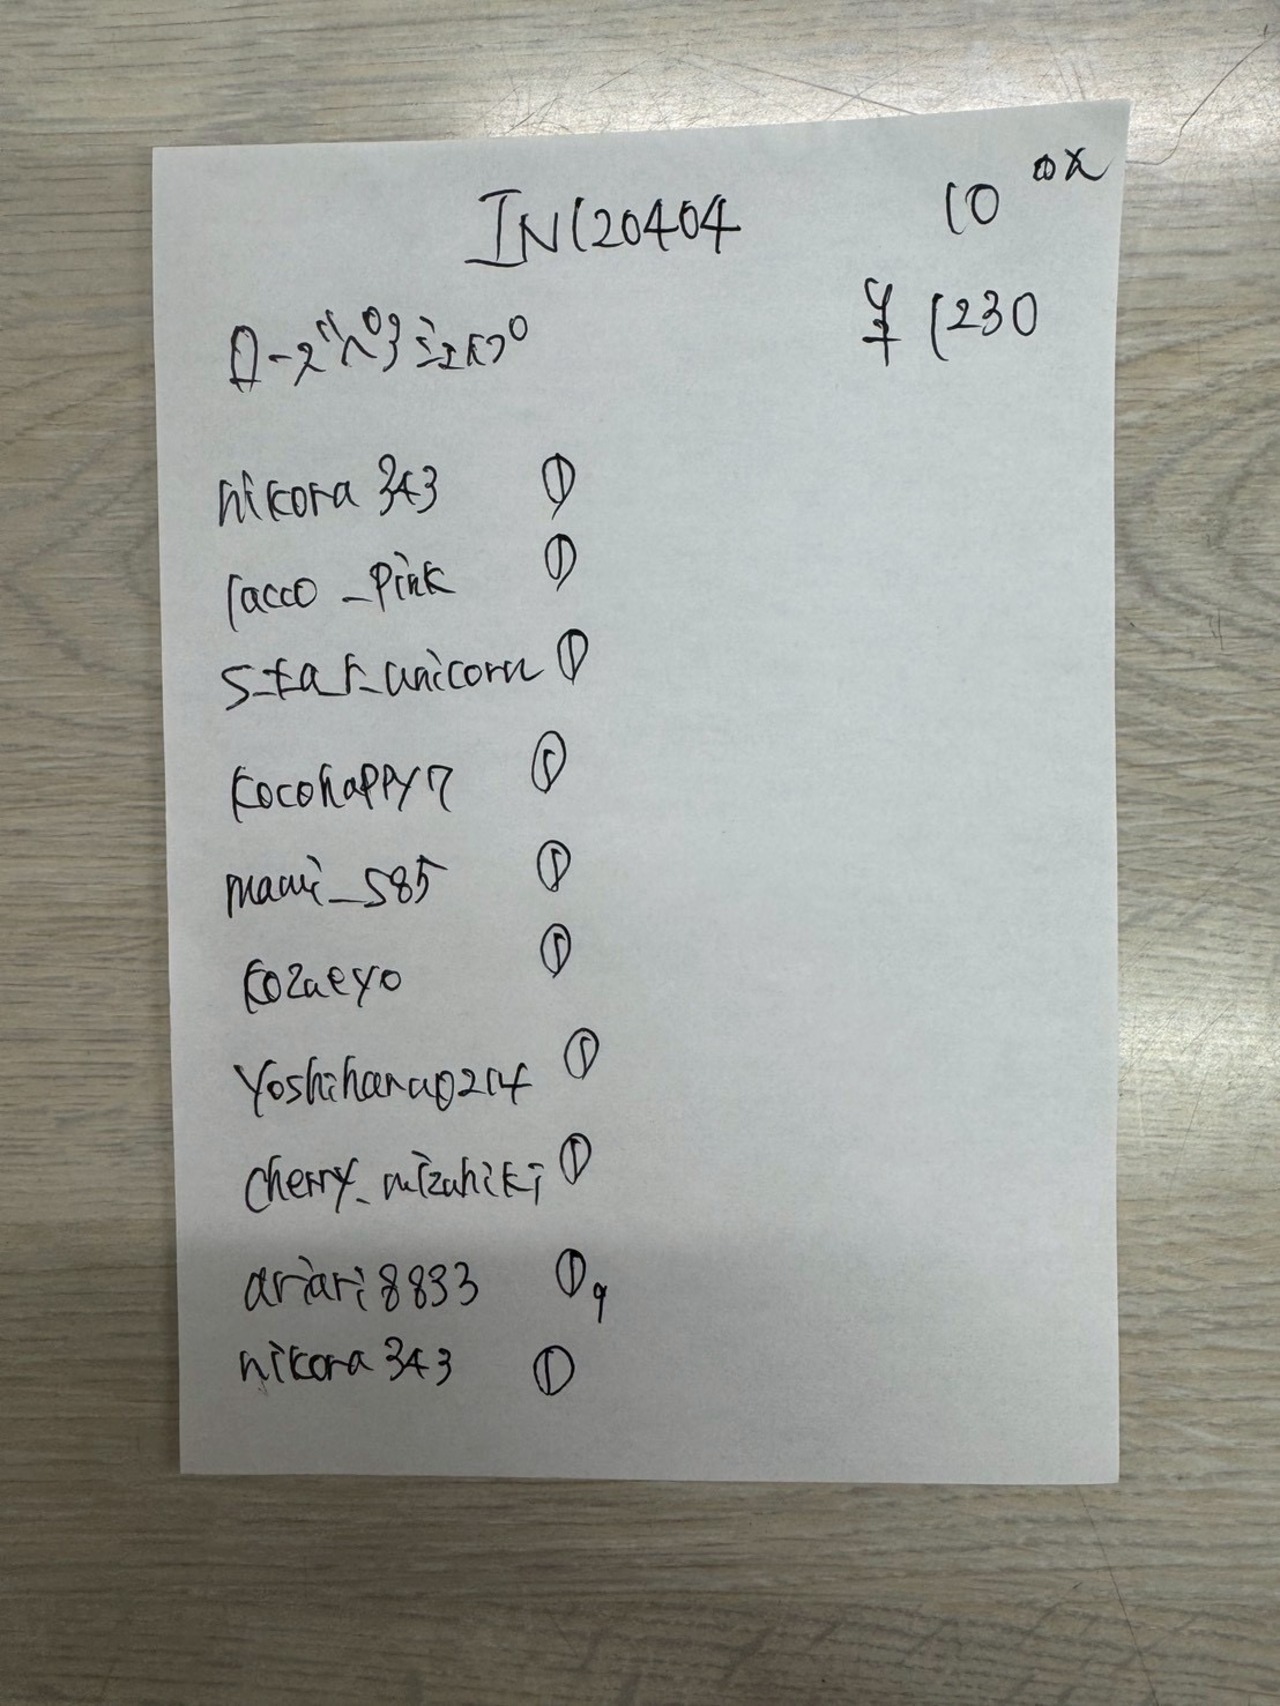 IN120404
10 ax
¥ 1230
nikora 343 ①
racco_pink ①
star_unicorn ①
kocohappy7 ①
mami_585 ①
kozaeyo ①
yoshiharu0214 ①
cherry_mizuhiki ①
ariari8833 ① 9
nikora 343 ①